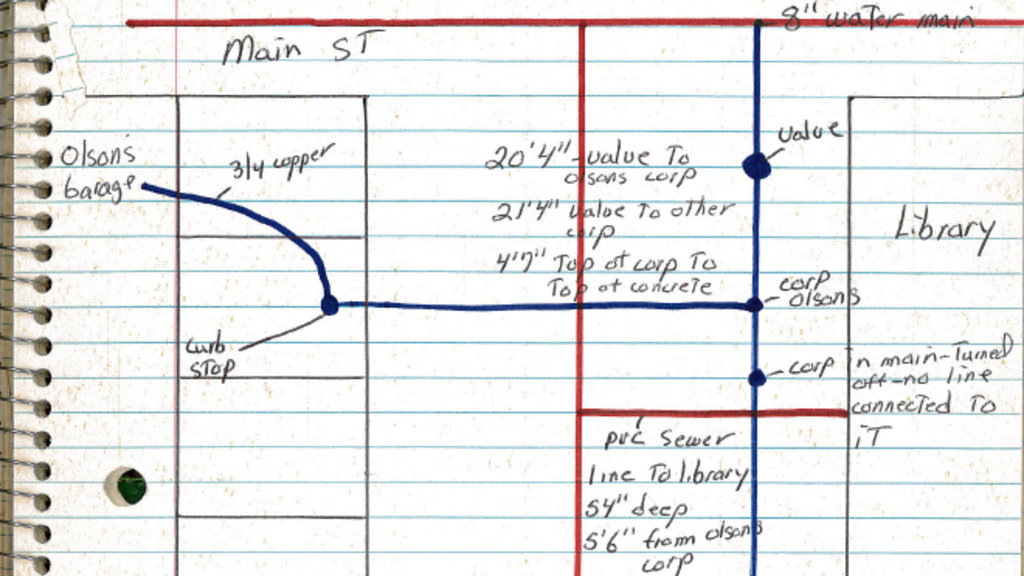 8" water main
Main ST
Olson's
barage
3/4 copper
20'4" - valve To
olsons corp
21'4" valve To other
corp
4'7" Top of corp To
Top of concrete
valve
Library
corp
olsons
curb
STop
corp In main-Turned
off-no line
connected To
iT
pvc sewer
line To library
54" deep
5'6" from olsons
corp